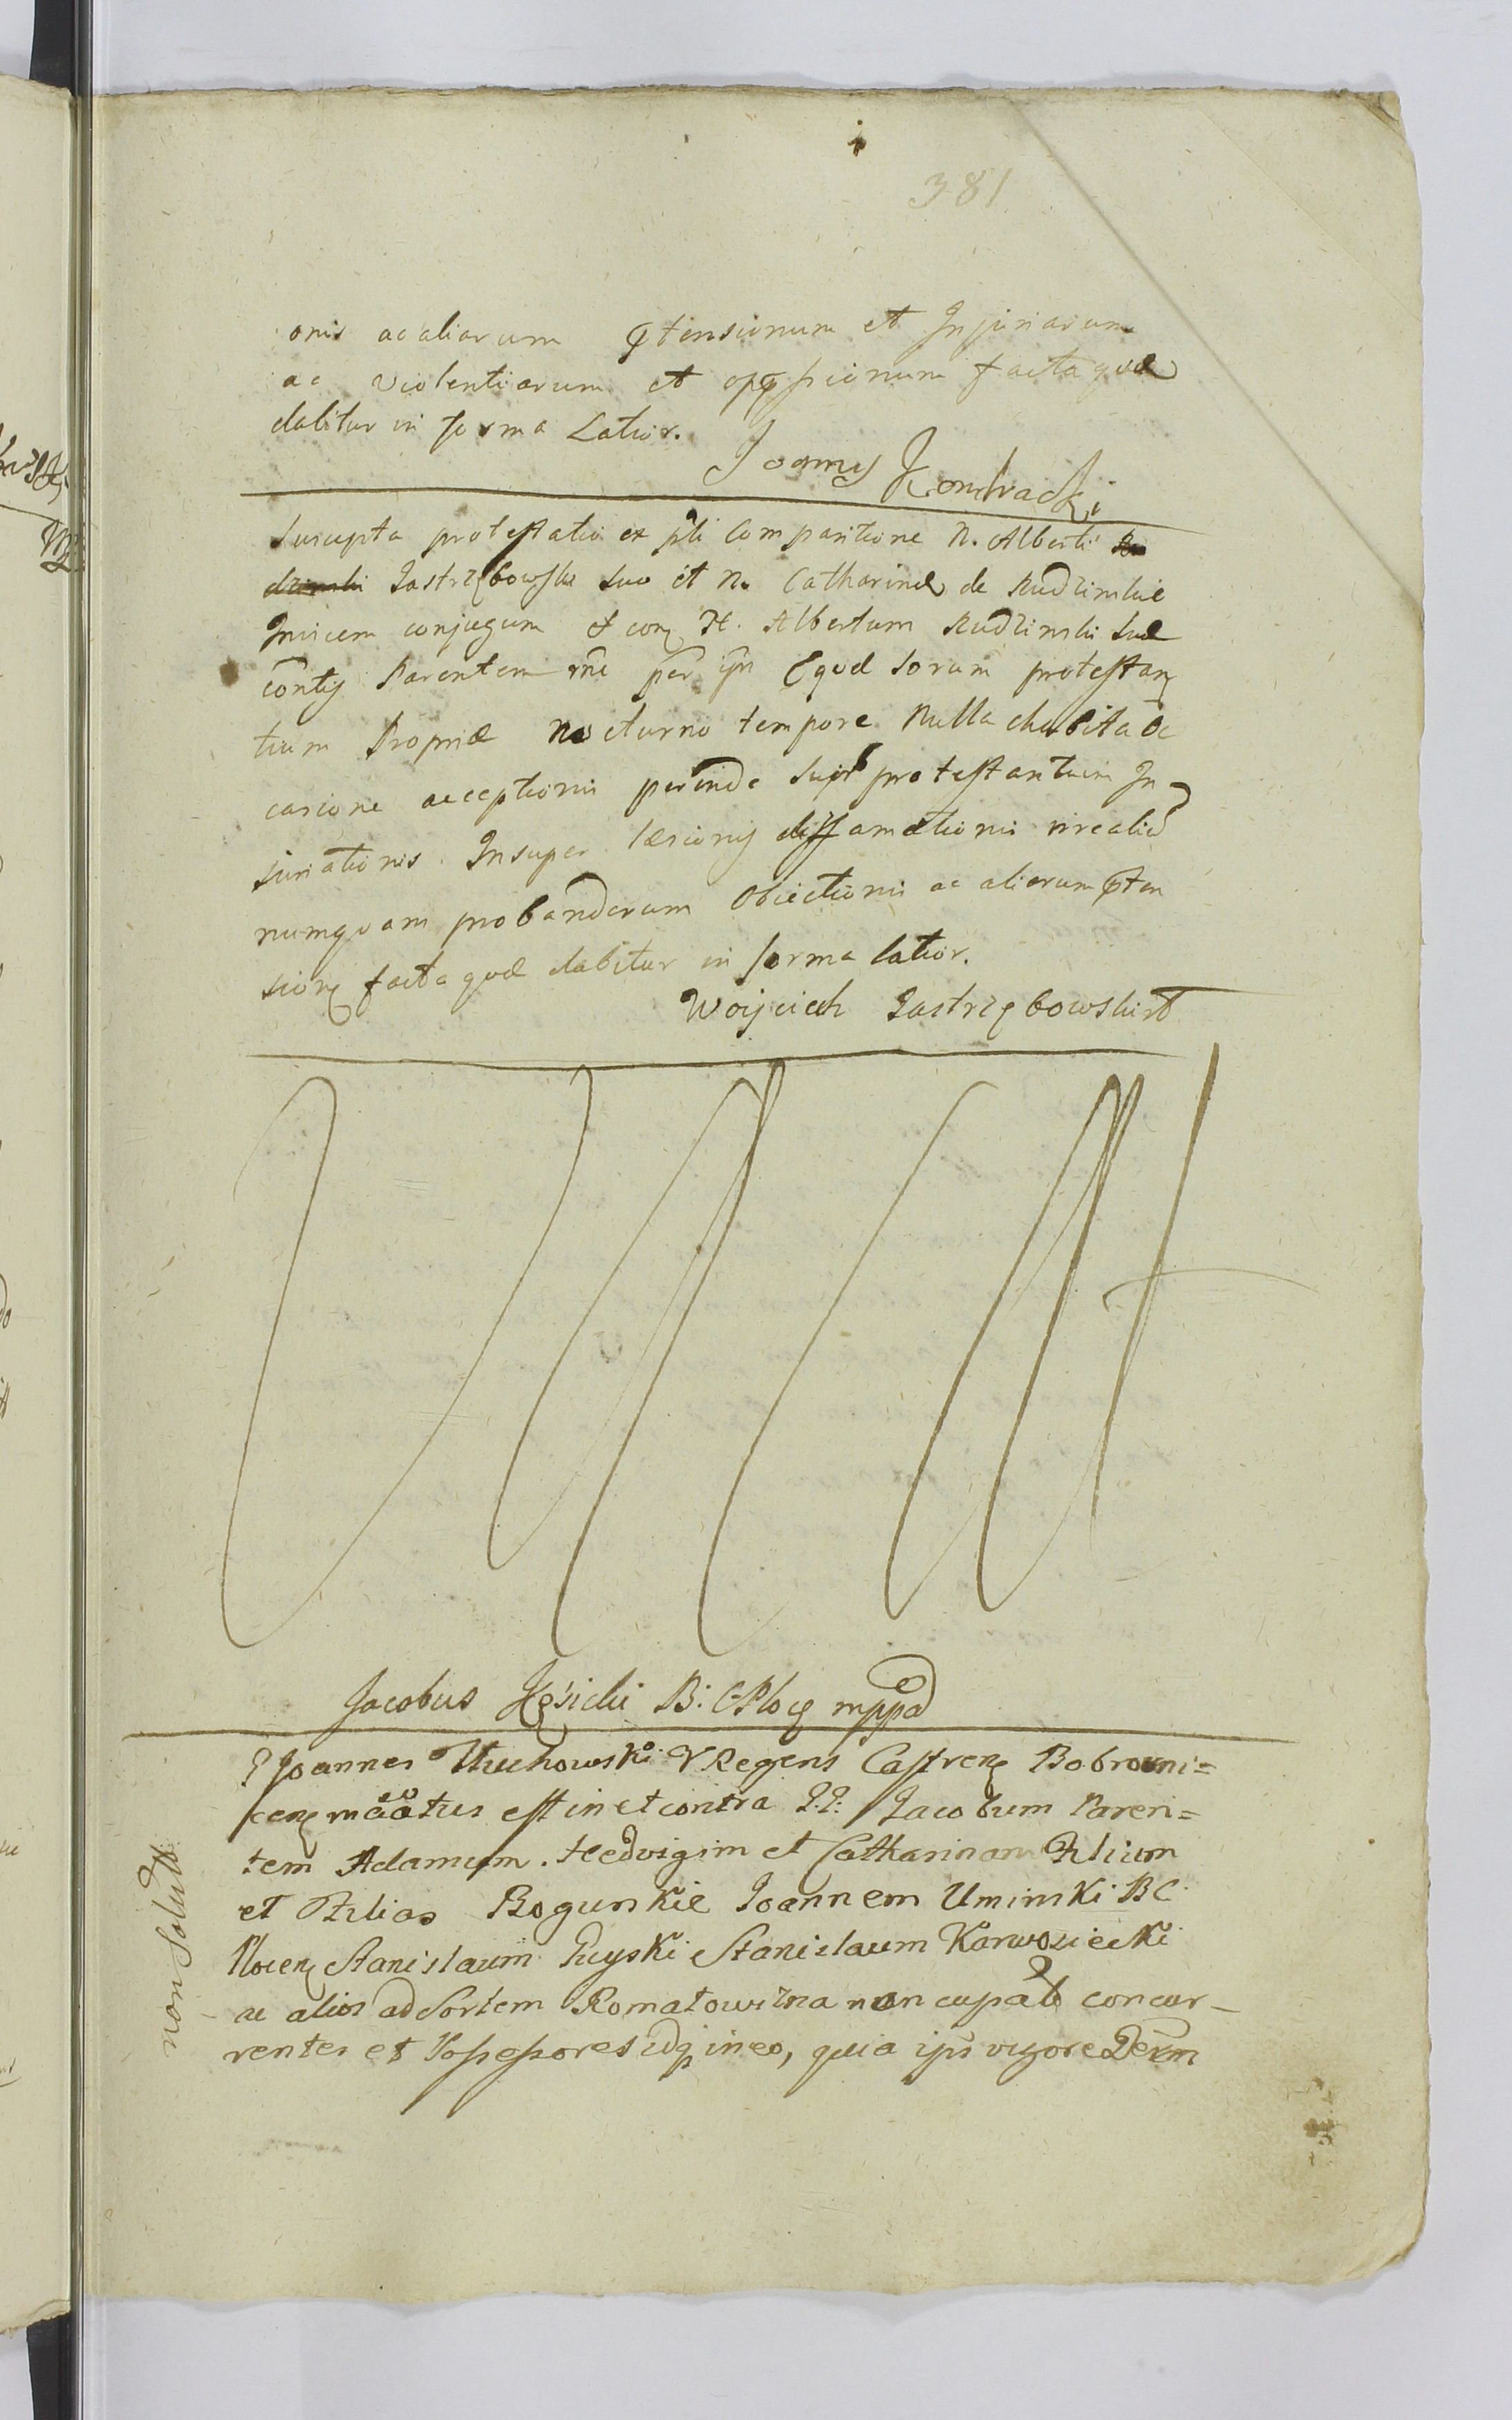 381
onis ac aliarum ptensionum et Injuriarum
ac violentiarum et oppssionum facta quæ
dabitur in forma Latior.
Joannes Kondracki
Suscepta protestatio ex pśli Comparitione N. Alberti
Jastrzębowski suo et N. Catharinæ de Rudzinskie
Invicem conjugum et con N. Albertum Rudzinski suæ
contis Parentem rne per ipn Equæ sorum protestan
tium Propriæ nocturno tempore Nulla habita oc
casione acceptionis perinde supr protestantium In
juriationis. Insuper læsionis diffamationis nirealid
numquam probandarum Obiectionis ac aliarum pten
sion facta quæ dabitur in forma latior.
Woyciech Jastrzębowski
Jacobus Kęsicki B: C Ploc mppa
Joannes Tłuchowski V Regens Castren Bobrowni=
cen máátus est in et contra P.P: Jacobum Paren=
tem Adamum. Hedvigim et Catharinam Filium
et Filias Rogunskie Joannem Uminski BC
Plocen Stanislaum Puyski Stanislaum Karwosiecki
ac alios ad Sortem Romatowizna nuncupat concur-
rentes et Possessores idq in eo, quia ipsi vigore Decm
non solvit